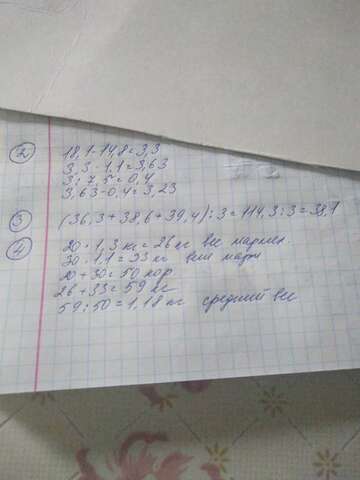 2
18,1-14,8=3,3
3,3·1,1=3,63
3:7,5=0,4
3,63-0,4=3,23
3 (36,3+38,6+39,4):3=114,3:3=38,1
4
20·1,3кг=26кг вес
30·1,1=33кг
20+30=50 кор
26+33=59 кг
59:50=1,18 кг средний вес